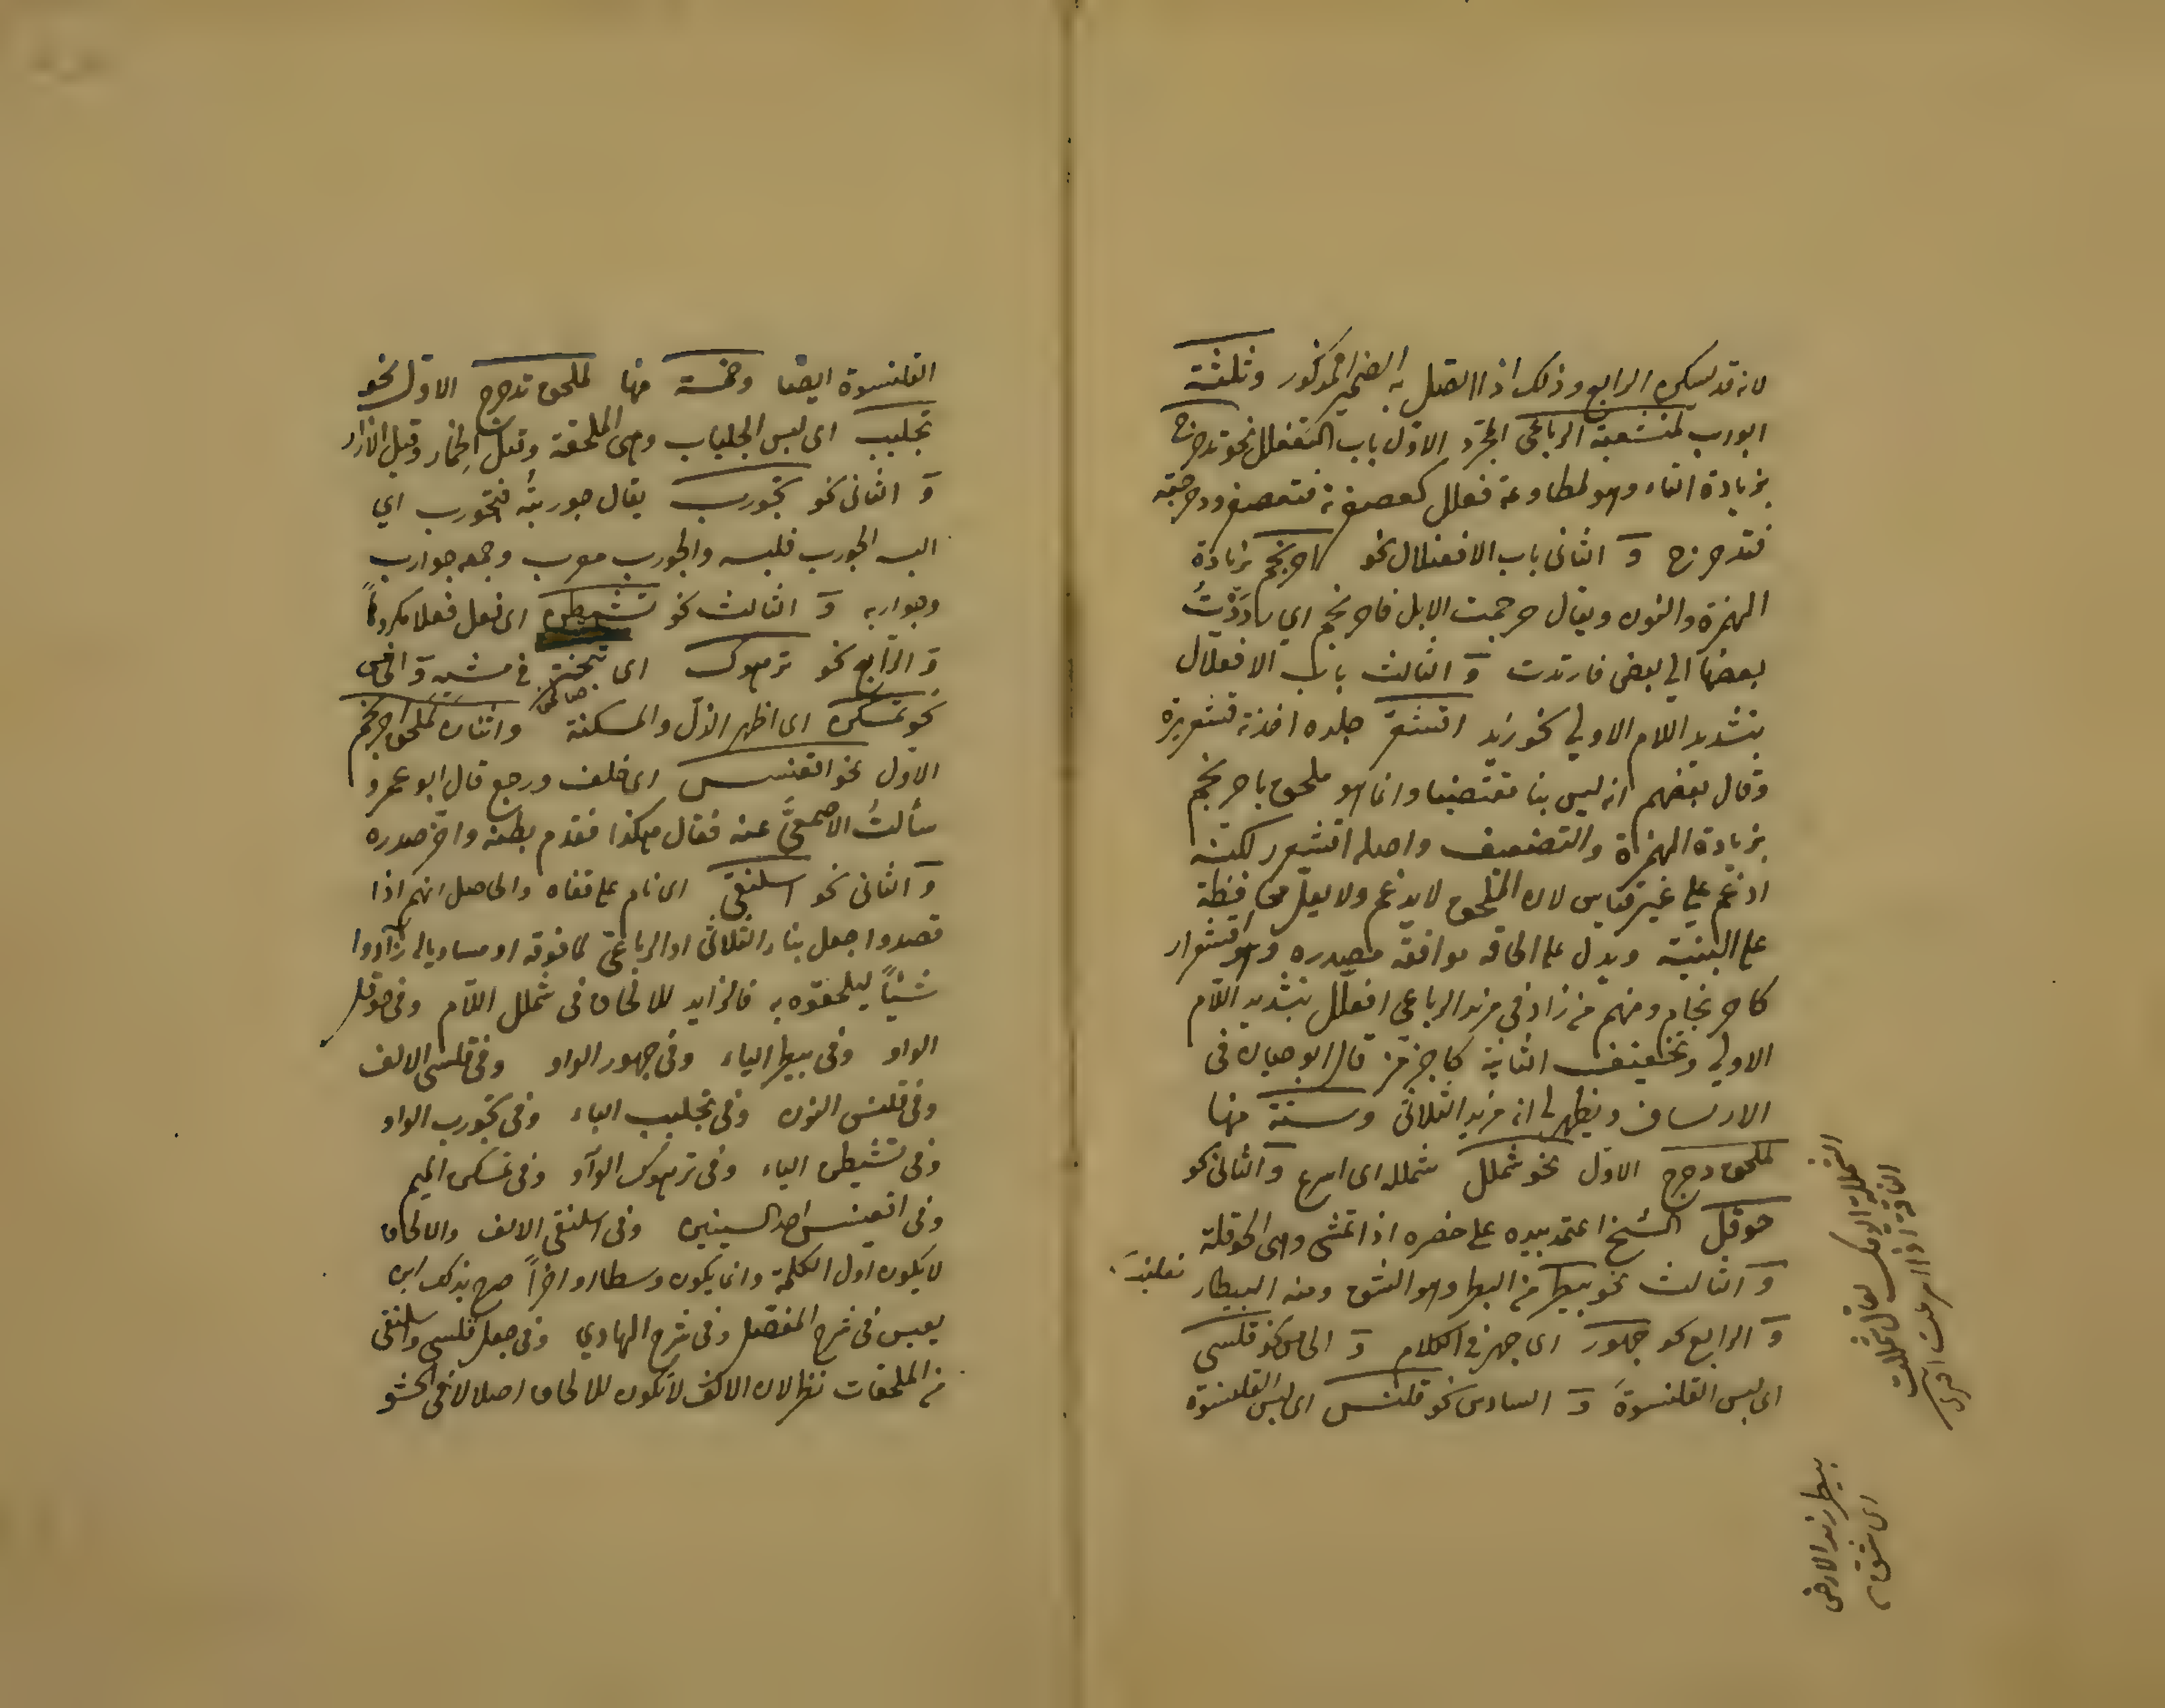 لانه قد يسكن الرابع وذلك اذا اتصل به الضمير المذكور وثلثة
ابواب لمنشعبة الرباعي المجرد الاول باب التفعلل نحو تدحرج
بزيادة التاء وهو لمطاوعة فعلل كعصفرته فتعصفر ودحرجته
فتدحرج و الثاني باب الافعنلال نحو احرنجم بزيادة
الهمزة والنون ويقال حرجمت الابل فاحرنجم اي رددْتُ
بعضها الي بعض فارتدت و الثالث باب الافعلّال
بتشديد اللام الاولي نحو زيد اقشعرّ جلده اخذته قشعريرة
وقال بعضهم انه ليس بنا مقتضبا وانما هو ملحق باحرنجم
بزيادة الهمزة والتضعيف واصله اقشعرر لكنه
ادغم علي غير قياس لان الملحق لا يدغم ولا يعل محافظة
على البنية ويدل على الحاقه موافقة مصدره وهو اقشعرار
كاحرنجام ومنهم من زاد في مزيد الرباعي افعلل بتشديد اللام
الاولي وتخفيف الثانية كاجرمز قال ابو حيان في
الارتشاف ويظهر لي انه مزيد الثلاثي وستة منها
لملحق دحرج الاول نحو شملل شملله اى اسرع و الثاني نحو
حوقل الشيخ اعتمد بيده على خصره اذا تمشى وهى الحوقلة
و الثالث نحو بيطر من البطر وهو الشق ومنه البيطار
و الرابع نحو جهور اى جهر في الكلام و الخامس نحو قلسى
اى لبس القلنسوةَ و السادس نحو قلنس اى لبس القلنسوة
بيطر زيد الارض
اى شق
القلنسوة ايضا وخمسة منها لملحق تدحرج الاول نحو
تجلبب اى لبس الجلباب وهى الملحفة وقيل الخمار وقيل الازار
و الثاني نحو تجورب يقال جوربتُه فتجورب اي
البسه الجورب فلبسه والجورب معرب وجمعه جوارب
وجواربه و الثالث نحو تشيطن اى فعل فعلا مكروهاً
و الرابع نحو ترهوك اى تبختر في مشيه و الخامس
نحو تمسكن اى اظهر الذل والمسكنة واثنان لملحق احرنجم
الاول نحو اقعنسس اى خلف ورجع قال ابو عمرو
سألتُ الاصمعيَّ عنه فقال هكذا فقدم بطنه واخر صدره
و الثاني نحو اسلنقى اى نام على قفاه والحاصل انهم اذا
قصدوا جعل بناء الثلاثي او الرباعي لما فوقه او مساويا له زادوا
شيئاً ليلحقوه به فالزايد للالحاق في شملل اللام وفي حوقل
الواو وفي بيطر الياء وفي جهور الواو وفي قلسى الالف
وفي قلنس النون وفي تجلبب الباء وفي تجورب الواو
وفي تشيطن الياء وفي ترهوك الواو وفي تمسكن الميم
وفي اقعنسس احد السينين وفي اسلنقى الالف والالحاق
لا يكون اول الكلمة وانما يكون وسطا او اخراً صرح بذلك ابن
يعيش في شرح المفصّل وفي شرح الهادي وفي جعل قلسى واسلنقى
من الملحقات نظر لان الالف لا تكون للالحاق اصلا لا في الحشو